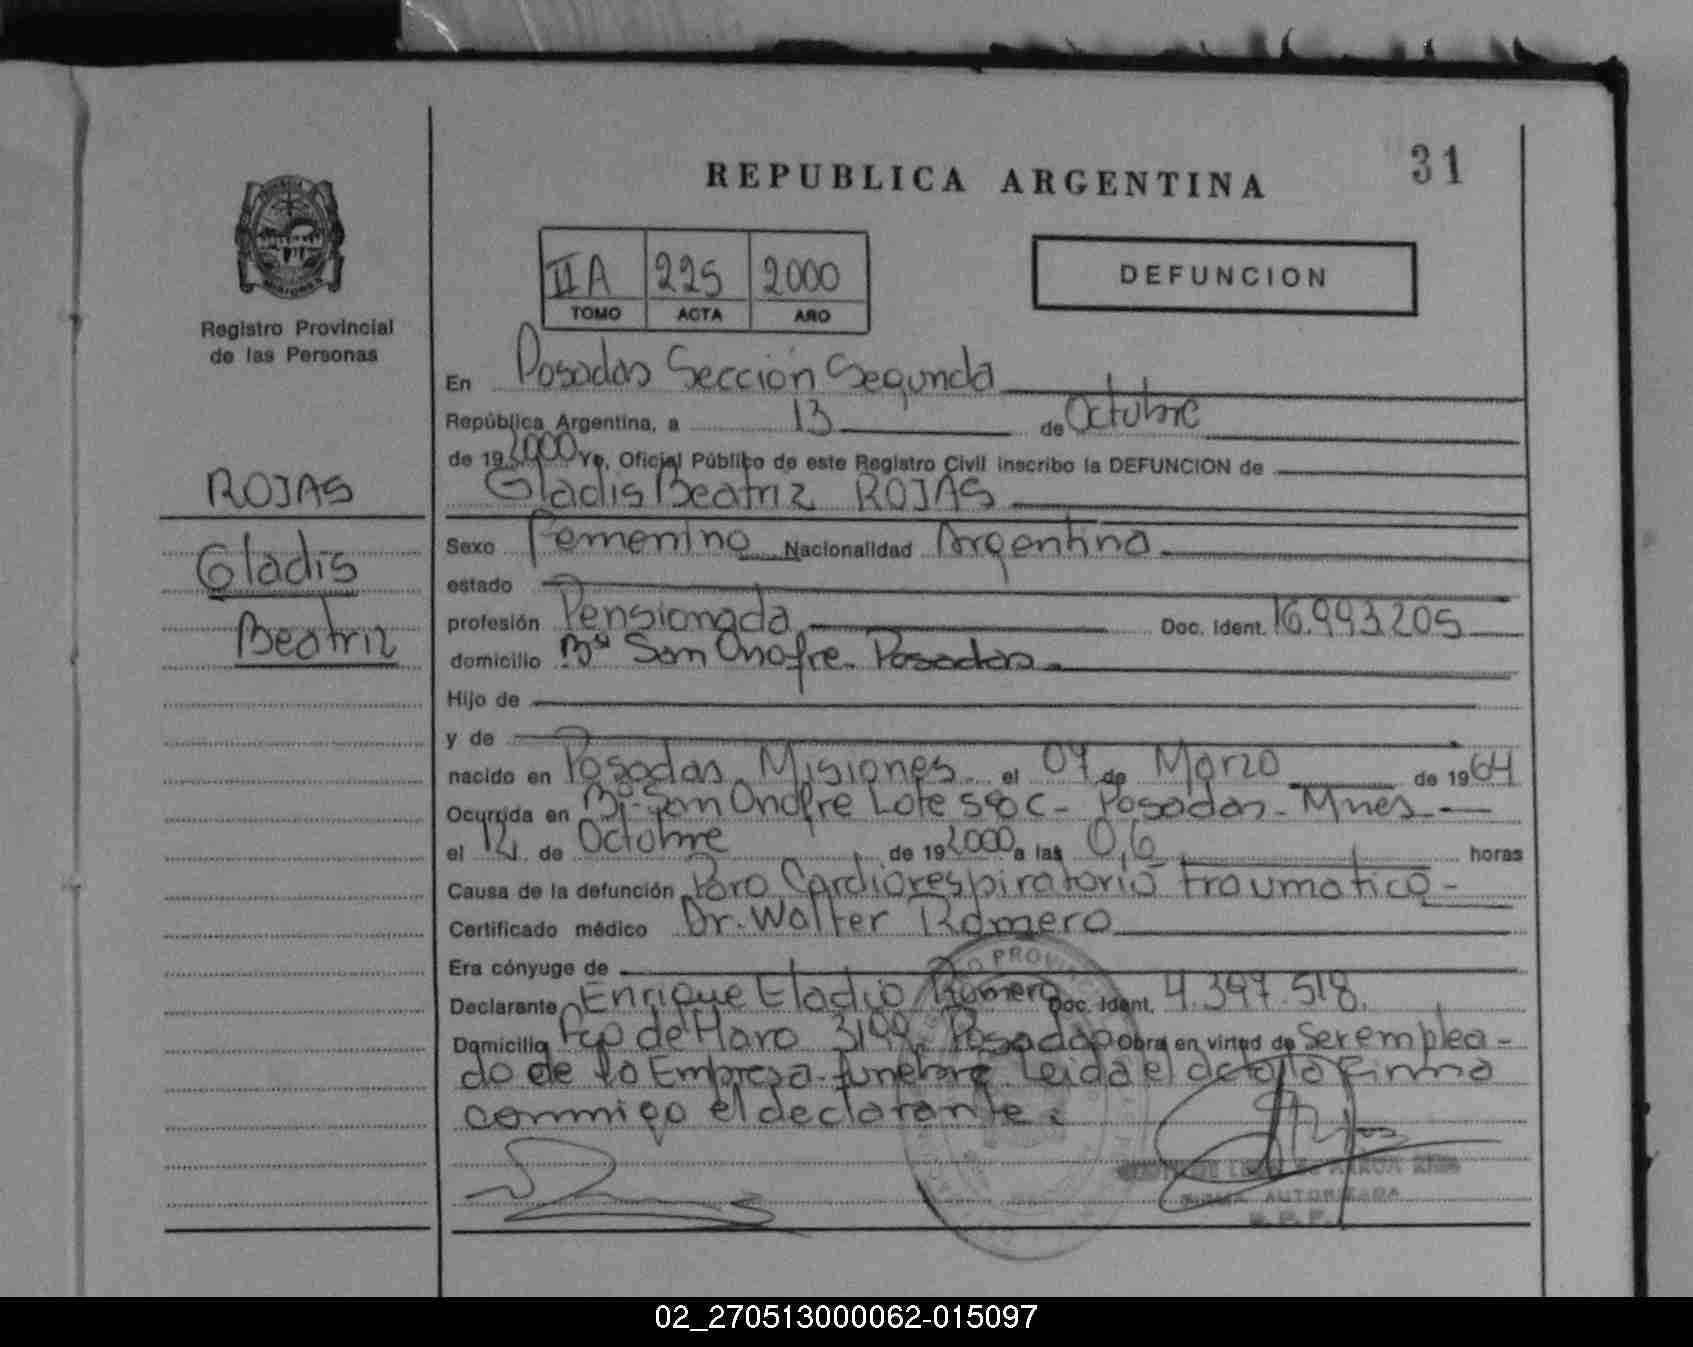 REPUBLICA ARGENTINA
31
IIA 225 2000
TOMO ACTA AÑO
DEFUNCION
Registro Provincial
de las Personas
ROJAS
Gladis
Beatriz
En Posadas Sección Segunda
República Argentina, a 13 de Octubre
de 19 2000 Yo, Oficial Público de este Registro Civil inscribo la DEFUNCION de
Gladis Beatriz ROJAS
Sexo Femenino Nacionalidad Argentina
estado
profesión Pensionada Doc. Ident. 16.993.205
domicilio Bº San Onofre. Posadas
Hijo de
y de
nacido en Posadas Misiones el 07 de Marzo de 1964
Ocurrida en Bº San Onofre Lote 58 C - Posadas - Mnes
el 12 de Octubre de 19 2000 a las 0,6 horas
Causa de la defunción Paro Cardiorespiratorio traumatico -
Certificado médico Dr. Walter Romero
Era cónyuge de
Declarante Enrique Eladio Romero Doc. Ident. 4.397.518.
Domicilio Fco de Haro 3199 Posadas obra en virtud de ser emplea-
do de la Empresa funebre. Leida el acta la Firma
conmigo el declarante.
FIRMA AUTORIZADA
R. P. P.
02_270513000062-015097